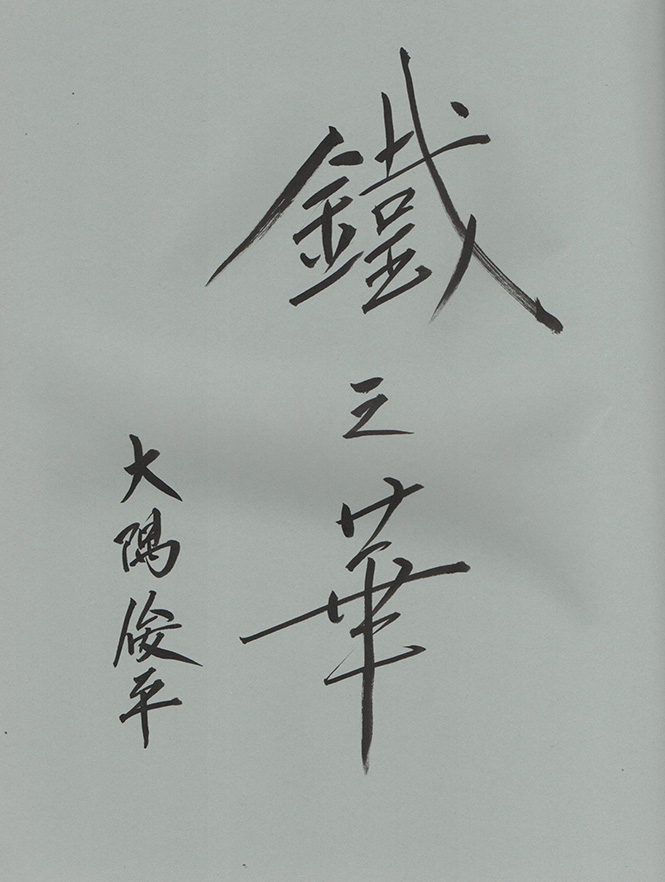 鐵之華
大隅俊平